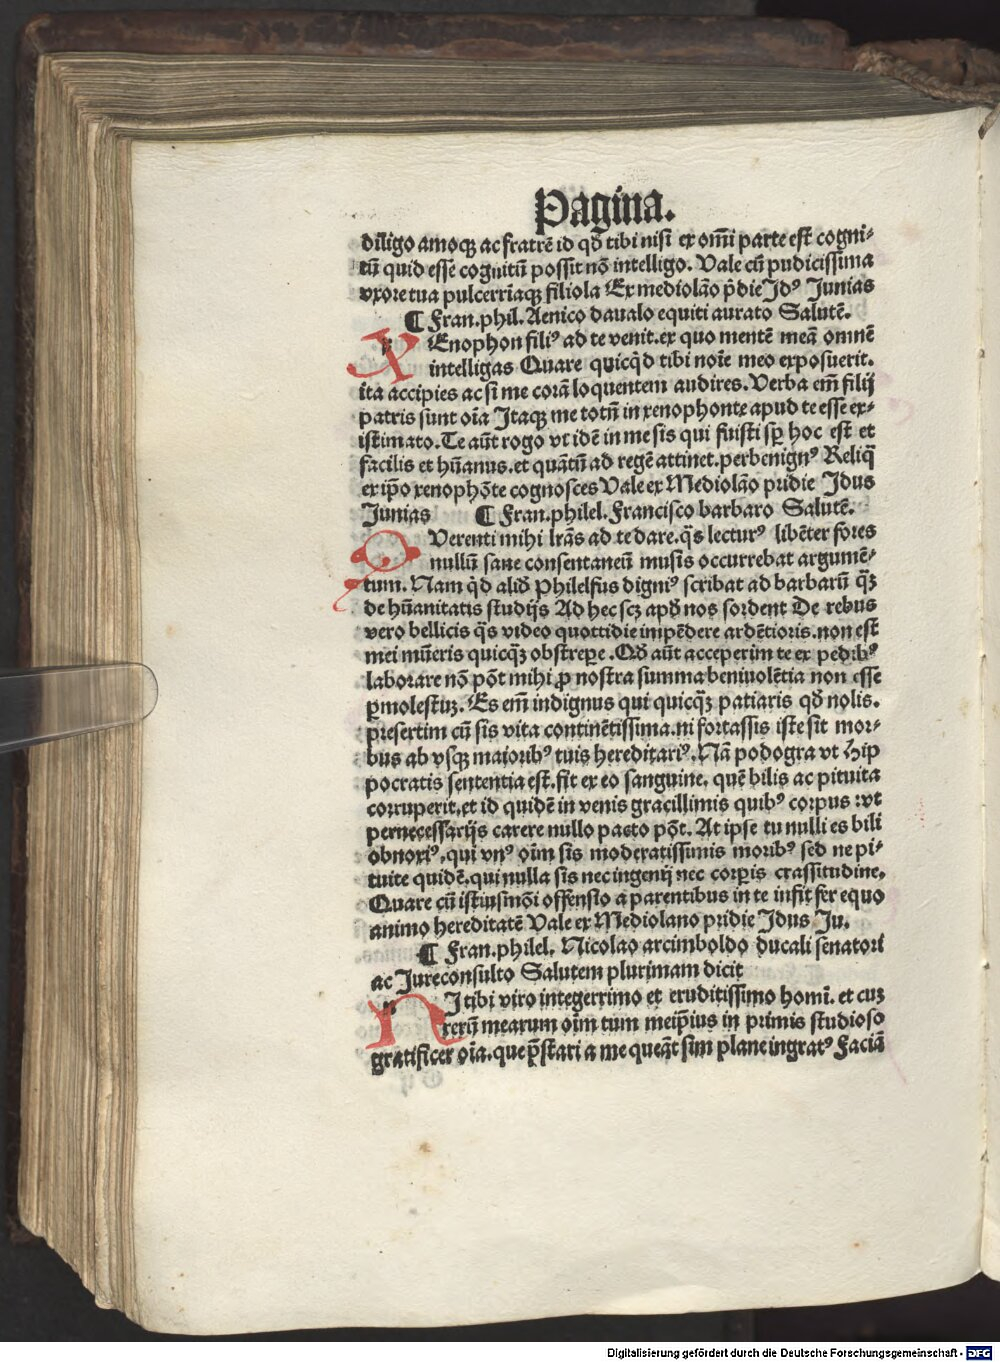 Pagina.
diligo amoqꝫ ac fratrē id qď tibi nisi ex om̄i parte est cogni⸗
tū quid esse cognitū possit nō intelligo. Vale cū pudicissima
vxore tua pulcerrīaqꝫ filiola Ex mediolāo p̄die Idꝰ Junias
¶ Fran.phil. Aenico daualo equiti aurato Salutē.
XEnophon filiꝰ ad te venit.ex quo mentē meā omnē
intelligas Quare quicq̇d tibi noīe meo exposuerit.
ita accipies ac si me corā loquentem audires. Verba em̄ filij
patris sunt oīa Itaqꝫ me totū in xenophonte apud te esse ex⸗
istimato. Te aūt rogo vt idē in me sis qui fuisti sꝑ hoc est et
facilis et hūanus.et quātū ad regē attinet.perbenignꝰ Reliq̄
ex ip̄o xenophōte cognosces Vale ex Mediolāo pridie Idus
Junias ¶ Fran.philel. Francisco barbaro Salutē.
QVerenti mihi lrās ad te dare.q̄s lecturꝰ libēter fores
nullū sane consentaneū musis occurrebat argumē⸗
tum. Nam q̇d aliď Philelfus digniꝰ scribat ad barbarū q̄ꝫ
de hūanitatis studijs Ad hec scꝫ apď nos sordent De rebus
vero bellicis q̄s video quottidie impēdere ardētioris.non est
mei mūeris quicq̄ꝫ obstrepe. Qď aūt acceperim te ex pedibꝰ
laborare nō pōt mihi ꝓ nostra summa beniuolētia non esse
ꝑmolestūꝫ. Es em̄ indignus qui quicq̄ꝫ patiaris qď nolis.
presertim cū sis vita continētissima.ni fortassis iste sit mor⸗
bus ab vsqꝫ maioribꝰ tuis hereditariꝰ. Nā podogra vt Hip
pocratis sententia est.fit ex eo sanguine. quē bilis ac pituita
corruperit.et id quidē in venis gracillimis quibꝰ corpus :vt
pernecessarijs carere nullo pacto pōt. At ipse tu nulli es bili
obnoxiꝰ.qui vnꝰ oīm sis moderatissimis moribꝰ sed ne pi⸗
tuite quidē.qui nulla sis nec ingenij nec corꝑis crassitudine.
Quare cū istiusmōi offensio a parentibus in te infit fer equo
animo hereditatē Vale ex Mediolano pridie Idus Ju.
¶ Fran.philel. Nicolao arcimboldo ducali senatori
ac Jureconsulto Salutem plurimam dicit
NItibi viro integerrimo et eruditissimo homī. et cuꝫ
rerū mearum oīm tum meip̄ius in primis studioso
gratificer oīa.que p̄stari a me queāt sim plane ingratꝰ Faciā
Digitalisierung gefördert durch die Deutsche Forschungsgemeinschaft - DFG